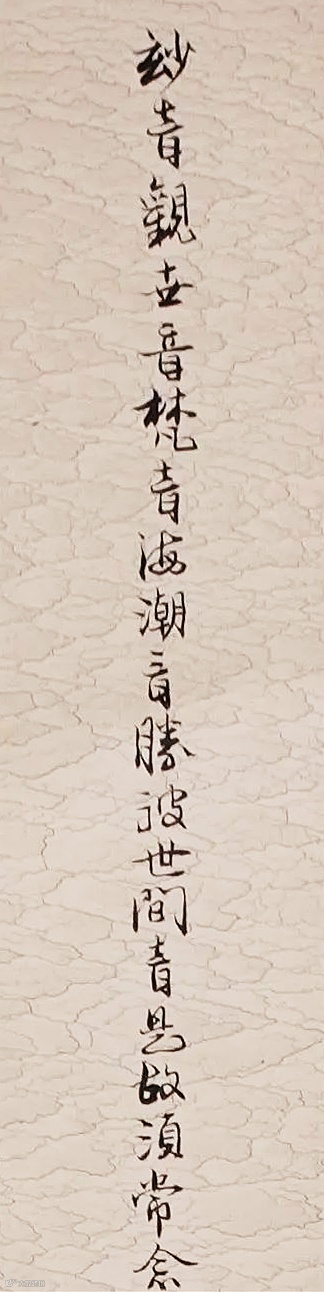 玅音觀世音梵音海潮音勝彼世間音是故須常念